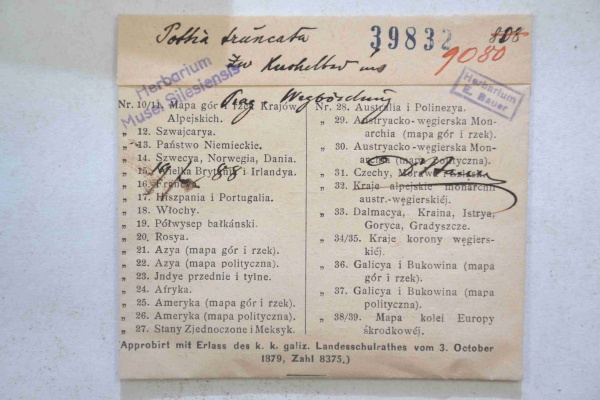 Pottia truncata 39832 808
Zw Kuchelbad 9080
Herbarium
Musei Silesiensis
Herbarium
E. Bauer
Prag Wegböschung
Nr. 10/11. Mapa gór i rzek Krajów
Alpejskich.
„ 12. Szwajcarya.
„ 13. Państwo Niemieckie.
„ 14. Szwecya, Norwegia, Dania.
„ 15. Wielka Brytania i Irlandya.
„ 16. Francya.
„ 17. Hiszpania i Portugalia.
„ 18. Włochy.
„ 19. Półwysep bałkański.
„ 20. Rosya.
„ 21. Azya (mapa gór i rzek).
„ 22. Azya (mapa polityczna).
„ 23. Indye przednie i tylne.
„ 24. Afryka.
„ 25. Ameryka (mapa gór i rzek).
„ 26. Ameryka (mapa polityczna).
„ 27. Stany Zjednoczone i Meksyk.
Nr. 28. Australia i Polinezya.
„ 29. Austryacko-węgierska Mon-
archia (mapa gór i rzek).
„ 30. Austryacko-węgierska Mon-
archia (mapa polityczna).
„ 31. Czechy, Morawa
„ 32. Kraje alpejskie monarchii
austr.-węgierskiéj.
„ 33. Dalmacya, Kraina, Istrya,
Goryca, Gradyszcze.
„ 34/35. Kraje korony węgiers-
kiéj.
„ 36. Galicya i Bukowina (mapa
gór i rzek).
„ 37. Galicya i Bukowina (mapa
polityczna).
„ 38/39. Mapa kolei Europy
środkowéj.
Approbirt mit Erlass des k. k. galiz. Landesschulrathes vom 3. October
1879, Zahl 8375.)